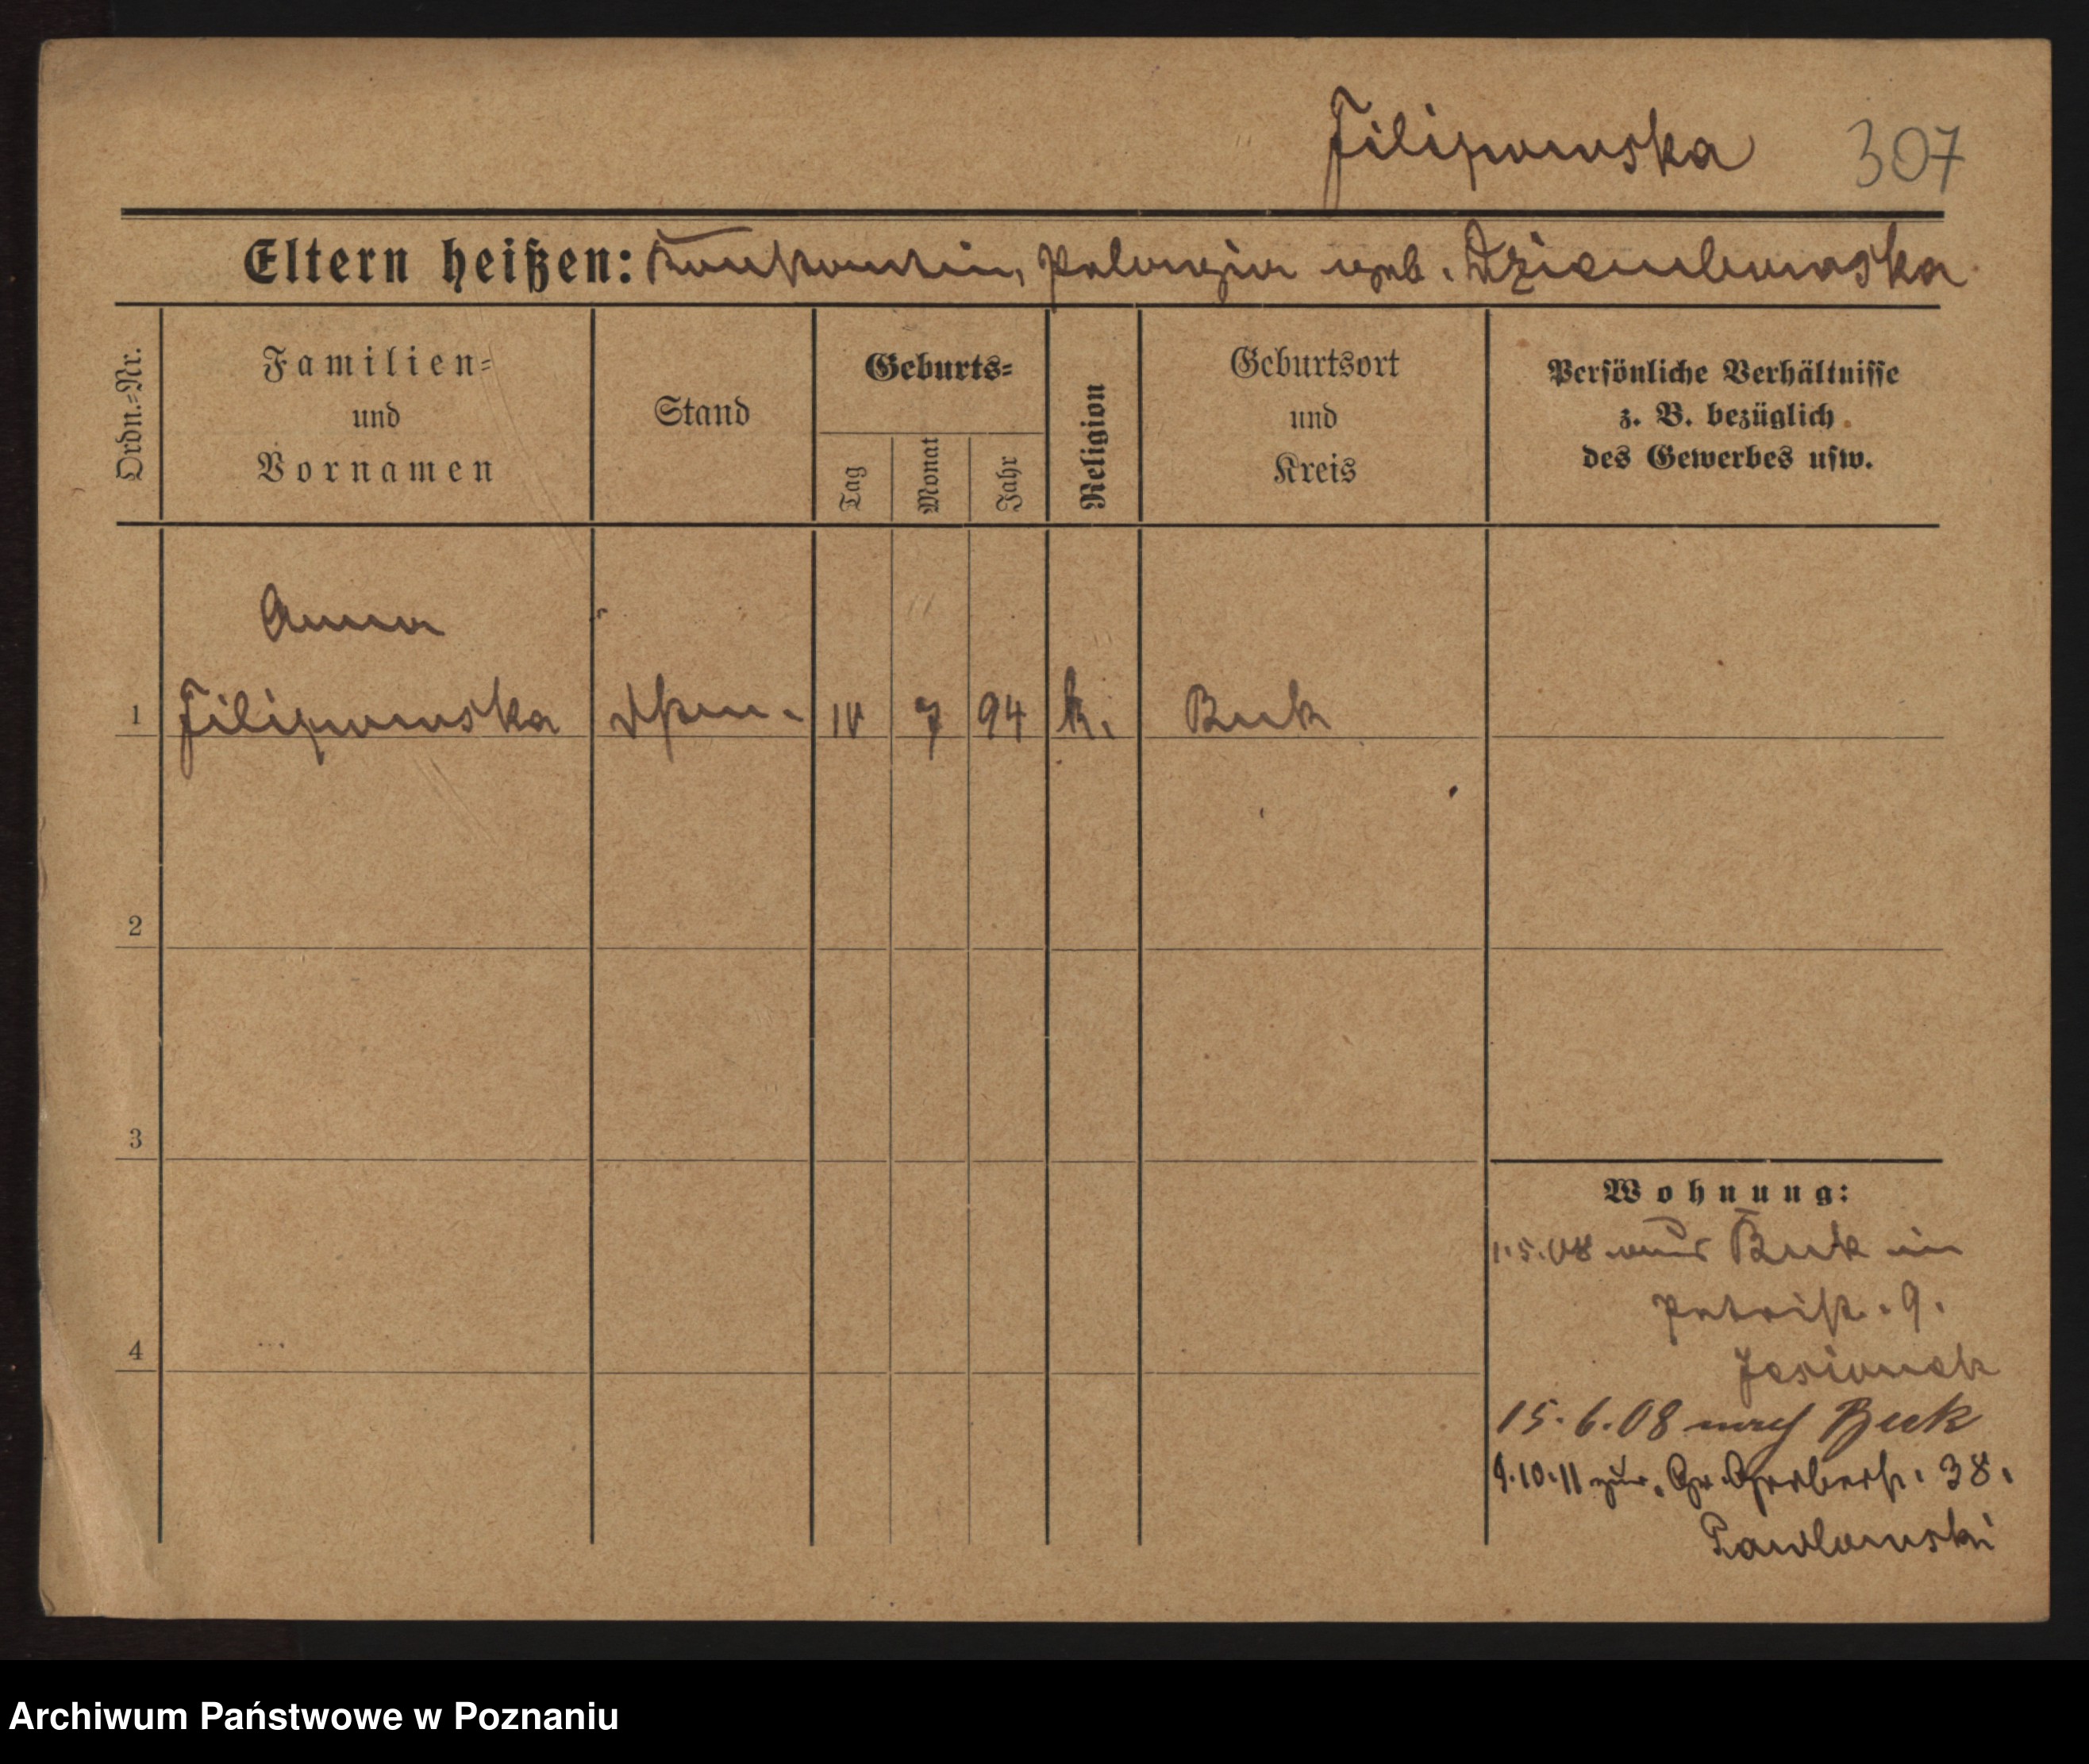 Filipowska 307
Eltern heißen: Konstantin, Pelagia geb. Dziembowska
Ordn.-Nr.
Familien-
und
Vornamen
Stand
Geburts-
Tag
Monat
Jahr
Religion
Geburtsort
und
Kreis
Persönliche Verhältnisse
z. B. bezüglich
des Gewerbes usw.
Anna
1 Filipowska 7 94 k. Buk
2
3
4
Wohnung:
1.5.08 aus Buk in
Petristr. 9.
Jesionek
15.6.08 nach Buk
9.10.11 zur. Gr. Gerberstr. 38.
Pawlowski
Archiwum Państwowe w Poznaniu